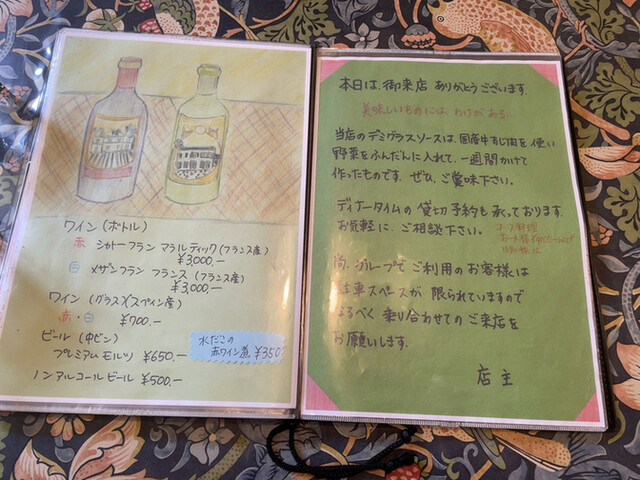 ワイン(ボトル)
赤 シャトーフラン マラルディック(フランス産)
¥3,000.—
白 メザンフラン フランス(フランス産)
¥3,000.—
ワイン(グラス)(スペイン産)
赤・白 ¥700.—
ビール(中ビン)
プレミアムモルツ ¥650.—
ノンアルコールビール ¥500.—
水だこの
赤ワイン煮 ¥350
本日は、御来店 ありがとうございます。
美味しいものには、わけがある
当店のデミグラスソースは、国産牛すじ肉を使い
野菜をふんだんに入れて、一週間かけて
作ったものです。ぜひ、ご賞味下さい。
ディナータイムの 貸切予約も承っております。
お気軽に、ご相談下さい。
尚、グループで ご利用のお客様は
駐車スペースが 限られていますので
なるべく 乗り合わせてのご来店を
お願いします。
店主